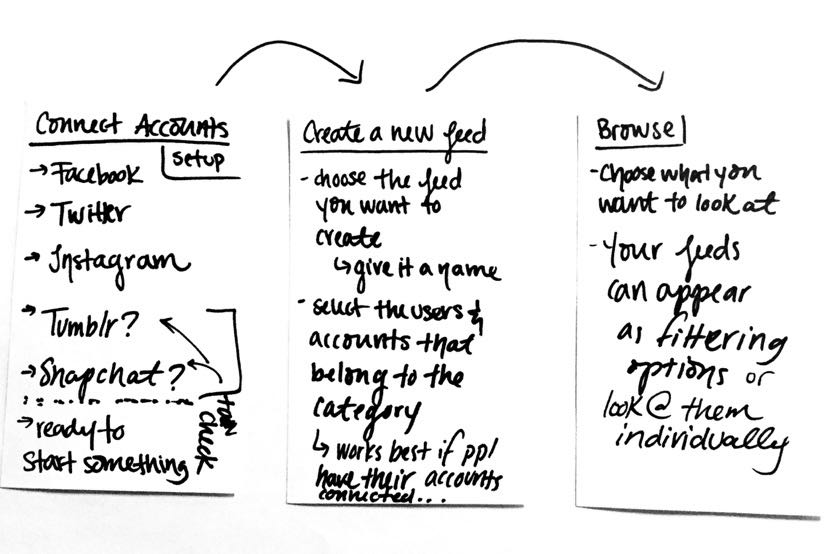 Connect Accounts
setup
→ Facebook
→ Twitter
→ Instagram
→ Tumblr?
→ Snapchat?
check
→ ready to
start something
Create a new feed
- choose the feed
you want to
create
↳ give it a name
- select the users &
accounts that
belong to the
category
↳ works best if ppl
have their accounts
connected...
Browse
- Choose what you
want to look at
- Your feeds
can appear
as filtering
options or
look @ them
individually